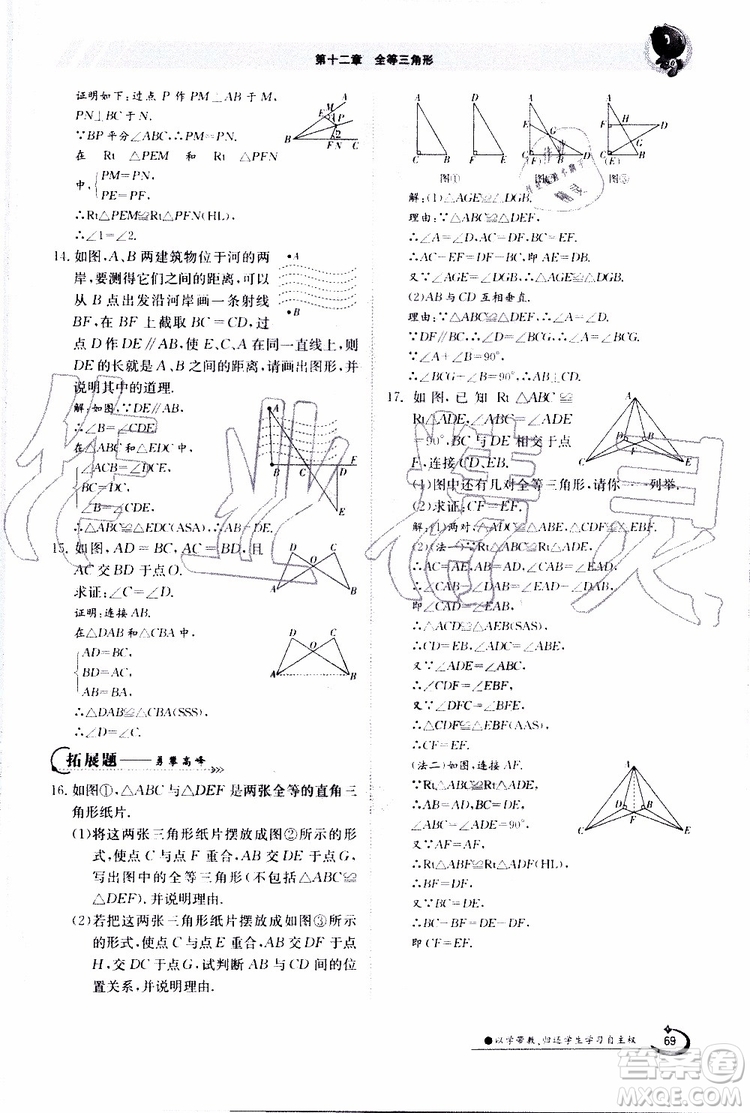 第十二章 全等三角形
证明如下:过点 P 作 PM⊥AB 于 M,
PN⊥BC 于 N.
∵BP 平分∠ABC,∴PM=PN.
在 Rt △PEM 和 Rt △PFN
中,
PM=PN,
PE=PF,
∴Rt△PEM≌Rt△PFN(HL),
∴∠1=∠2.
14. 如图,A、B 两建筑物位于河的两
岸,要测得它们之间的距离,可以
从 B 点出发沿河岸画一条射线
BF,在 BF 上截取 BC=CD,过
点 D 作 DE∥AB,使 E、C、A 在同一直线上,则
DE 的长就是 A、B 之间的距离,请画出图形,并
说明其中的道理.
解:如图,∵DE∥AB,
∴∠B=∠CDE.
在△ABC 和△EDC 中,
∠ACB=∠ECD,
BC=CD,
∠B=∠CDE,
∴△ABC≌△EDC(ASA),∴AB=DE.
15. 如图,AD=BC,AC=BD,且
AC 交 BD 于点 O.
求证:∠C=∠D.
证明:连接 AB.
在△DAB 和△CBA 中,
AD=BC,
BD=AC,
AB=BA,
∴△DAB≌△CBA(SSS),
∴∠D=∠C.
拓展题——勇攀高峰
16. 如图①,△ABC 与△DEF 是两张全等的直角三
角形纸片.
(1)将这两张三角形纸片摆放成图②所示的形
式,使点 C 与点 F 重合,AB 交 DE 于点 G,
写出图中的全等三角形(不包括△ABC≌
△DEF).并说明理由.
(2)若把这两张三角形纸片摆放成如图③所示
的形式,使点 C 与点 E 重合,AB 交 DF 于点
H,交 CD 于点 G,试判断 AB 与 CD 间的位
置关系,并说明理由.
图①
解:(1)△AGE≌△DGB.
理由:∵△ABC≌△DEF,
∴∠A=∠D,AC=DF,BC=EF.
∴AC-EF=DF-BC,即 AE=DB.
又∵∠AGE=∠DGB,
∴△AGE≌△DGB.
(2)AB 与 CD 互相垂直.
理由:∵△ABC≌△DEF,
∴∠A=∠D.
∵DF∥BC,∴∠D=∠BCG,∴∠A=∠BCG,
∵∠A+∠B=90°,
∴∠BCG+∠B=90°,∴AB⊥CD.
17. 如图,已知 Rt △ABC ≌
Rt△ADE,∠ABC=∠ADE
=90°,BC 与 DE 相交于点
F,连接 CD,EB.
(1)图中还有几对全等三角形,请你一一列举.
(2)求证:CF=EF.
解:(1)两对,△ADC≌△ABE,△CDF≌△EBF.
(2)(法一)∵Rt△ABC≌Rt△ADE,
∴AC=AE,AD=AB,∠CAB=∠EAD,
∴∠CAB-∠DAB=∠EAD-∠DAB,
即∠CAD=∠EAB,
∴△CAD≌△EAB(SAS),
∴CD=EB,∠ADC=∠ABE.
又∵∠ADE=∠ABC,
∴∠CDF=∠EBF,
又∵∠DFC=∠BFE,
∴△CDF≌△EBF(AAS).
∴CF=EF.
(法二)如图,连接 AF.
∵Rt△ABC≌Rt△ADE,
∴AB=AD,BC=DE,
∠ABC=∠ADE=90°,
又∵AF=AF,
∴Rt△ABF≌Rt△ADF(HL),
∴BF=DF.
又∵BC=DE,
∴BC-BF=DE-DF,
即 CF=EF.
以学带教,归还学生学习自主权
69